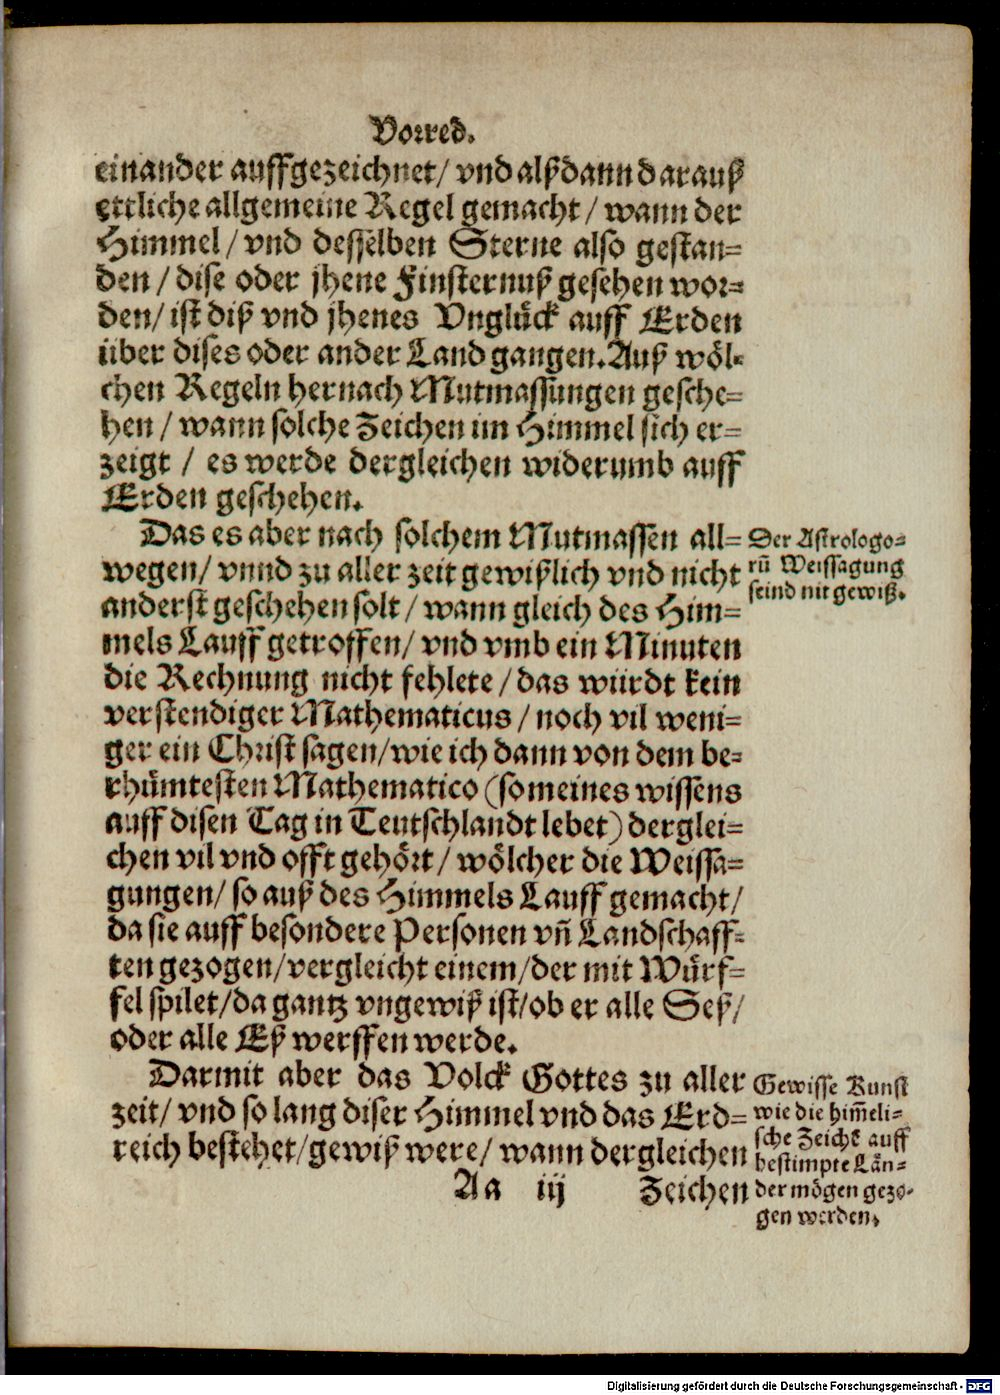 Vorred.
einander auffgezeichnet/ vnd alßdann darauß
ettliche allgemeine Regel gemacht/ wann der
Himmel/ vnd desselben Sterne also gestan=
den/ dise oder jhene Finsternuß gesehen wor=
den/ ist diß vnd jhenes Vnglück auff Erden
über dises oder ander Land gangen. Auß wöl=
chen Regeln hernach Mutmassungen gesche=
hen/ wann solche Zeichen im Himmel sich er=
zeigt/ es werde dergleichen widerumb auff
Erden geschehen.
Das es aber nach solchem Mutmassen all=
wegen/ vnnd zu aller zeit gewißlich vnd nicht
anderst geschehen solt/ wann gleich des Him=
mels Lauff getroffen/ vnd vmb ein Minuten
die Rechnung nicht fehlete/ das würdt kein
verstendiger Mathematicus/ noch vil weni=
ger ein Christ sagen/ wie ich dann von dem be=
rhümtesten Mathematico (so meines wissens
auff disen Tag in Teutschlandt lebet) derglei=
chen vil vnd offt gehört/ wölcher die Weissa=
gungen/ so auß des Himmels Lauff gemacht/
da sie auff besondere Personen vñ Landschaff=
ten gezogen/ vergleicht einem/ der mit Würf=
fel spilet/ da gantz vngewiß ist/ ob er alle Seß/
oder alle Eß werffen werde.
Der Astrologo=
rū Weissagung
seind nit gewiß.
Darmit aber das Volck Gottes zu aller
zeit/ vnd so lang diser Himmel vnd das Erd=
reich bestehet/ gewiß were/ wann dergleichen
Gewisse Kunst
wie die him̄eli=
sche Zeichē auff
bestimpte Län=
der mögen gezo=
gen werden.
Aa iij Zeichen
Digitalisierung gefördert durch die Deutsche Forschungsgemeinschaft - DFG